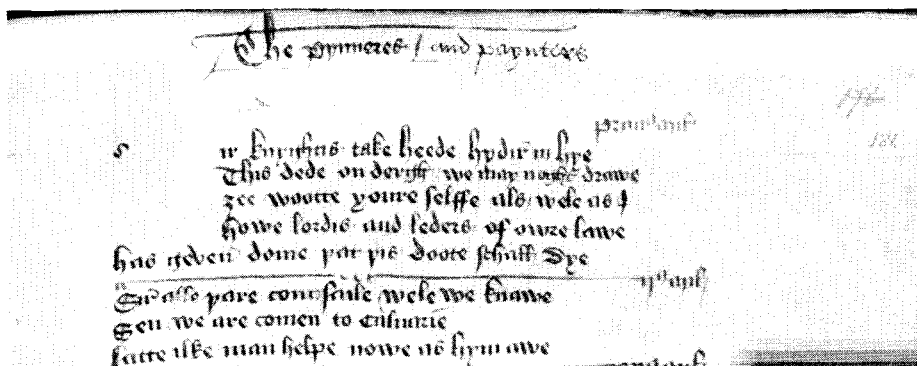 The pynneres / and paynters
s ir knyghtis take heede hydir in hye
This dede on dergh we may noght drawe
ȝee wootte youre selffe als wele as I
howe lordis and leders of owre lawe
has geven dome þat þis doote schall dye
Sir alle þare counsaile wele we knawe
Sen we are comen to Caluarie
latte ilke man helpe nowe as hym awe